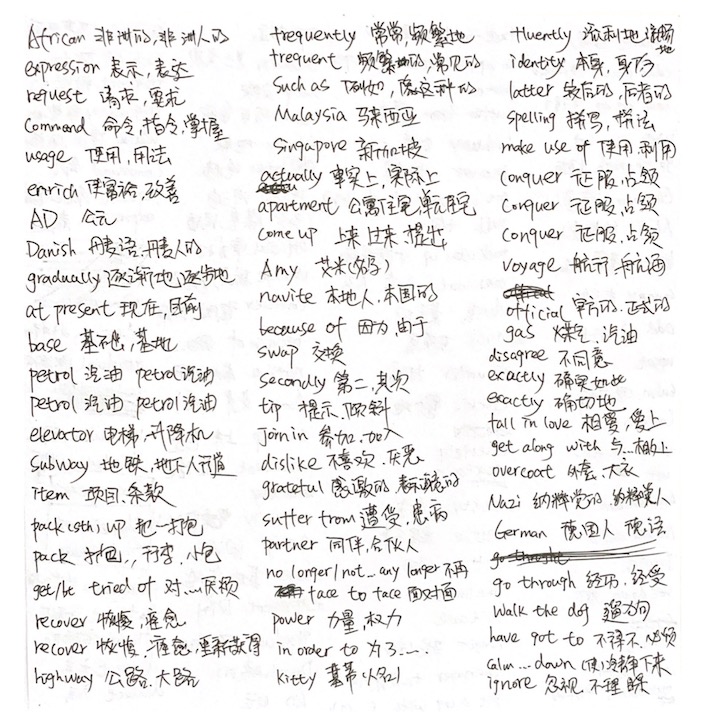 African 非洲的,非洲人的
expression 表示,表达
request 请求,要求
Command 命令,指令,掌握
usage 使用,用法
enrich 使富裕,改善
AD 公元
Danish 丹麦语,丹麦人的
gradually 逐渐地,逐步地
at present 现在,目前
base 基地
petrol 汽油 petrol 汽油
petrol 汽油 petrol 汽油
elevator 电梯,升降机
Subway 地铁,地下人行道
Item 项目,条款
pack (sth) up 把…打包
pack 打包,,行李,小包
get/be tried of 对…厌烦
recover 恢复,痊愈
recover 恢复,痊愈,重新获得
highway 公路,大路
frequently 常常,频繁地
frequent 频繁的,常见的
Such as 例如,像这种的
Malaysia 马来西亚
Singapore 新加坡
actually 事实上,实际上
apartment 公寓住宅,单元住宅
come up 上来,过来,提出
Amy 艾米(名字)
navite 本地人,本国的
because of 因为,由于
swap 交换
Secondly 第二,其次
tip 提示,倾斜
Join in 参加,加入
dislike 不喜欢,厌恶
grateful 感激的,表示感谢的
suffer from 遭受,患病
partner 同伴,合伙人
no longer/not…any longer 不再
face to face 面对面
power 力量,权力
in order to 为了……
kitty 基蒂(人名)
fluently 流利地,流畅地
identity 本身,身份
latter 较后的,后者的
spelling 拼写,拼法
make use of 使用,利用
Conquer 征服,占领
Conquer 征服,占领
Conquer 征服,占领
Voyage 航行,航海
official 官方的,正式的
gas 煤气,汽油
disagree 不同意
exactly 确实如此
exactly 确切地
fall in love 相爱,爱上
get along with 与…相处
overcoat 外套,大衣
Nazi 纳粹党的 纳粹党人
German 德国人 德语
go through 经历,经受
walk the dog 遛狗
have got to 不得不,必须
calm…down (使)冷静下来
ignore 忽视,不理睬